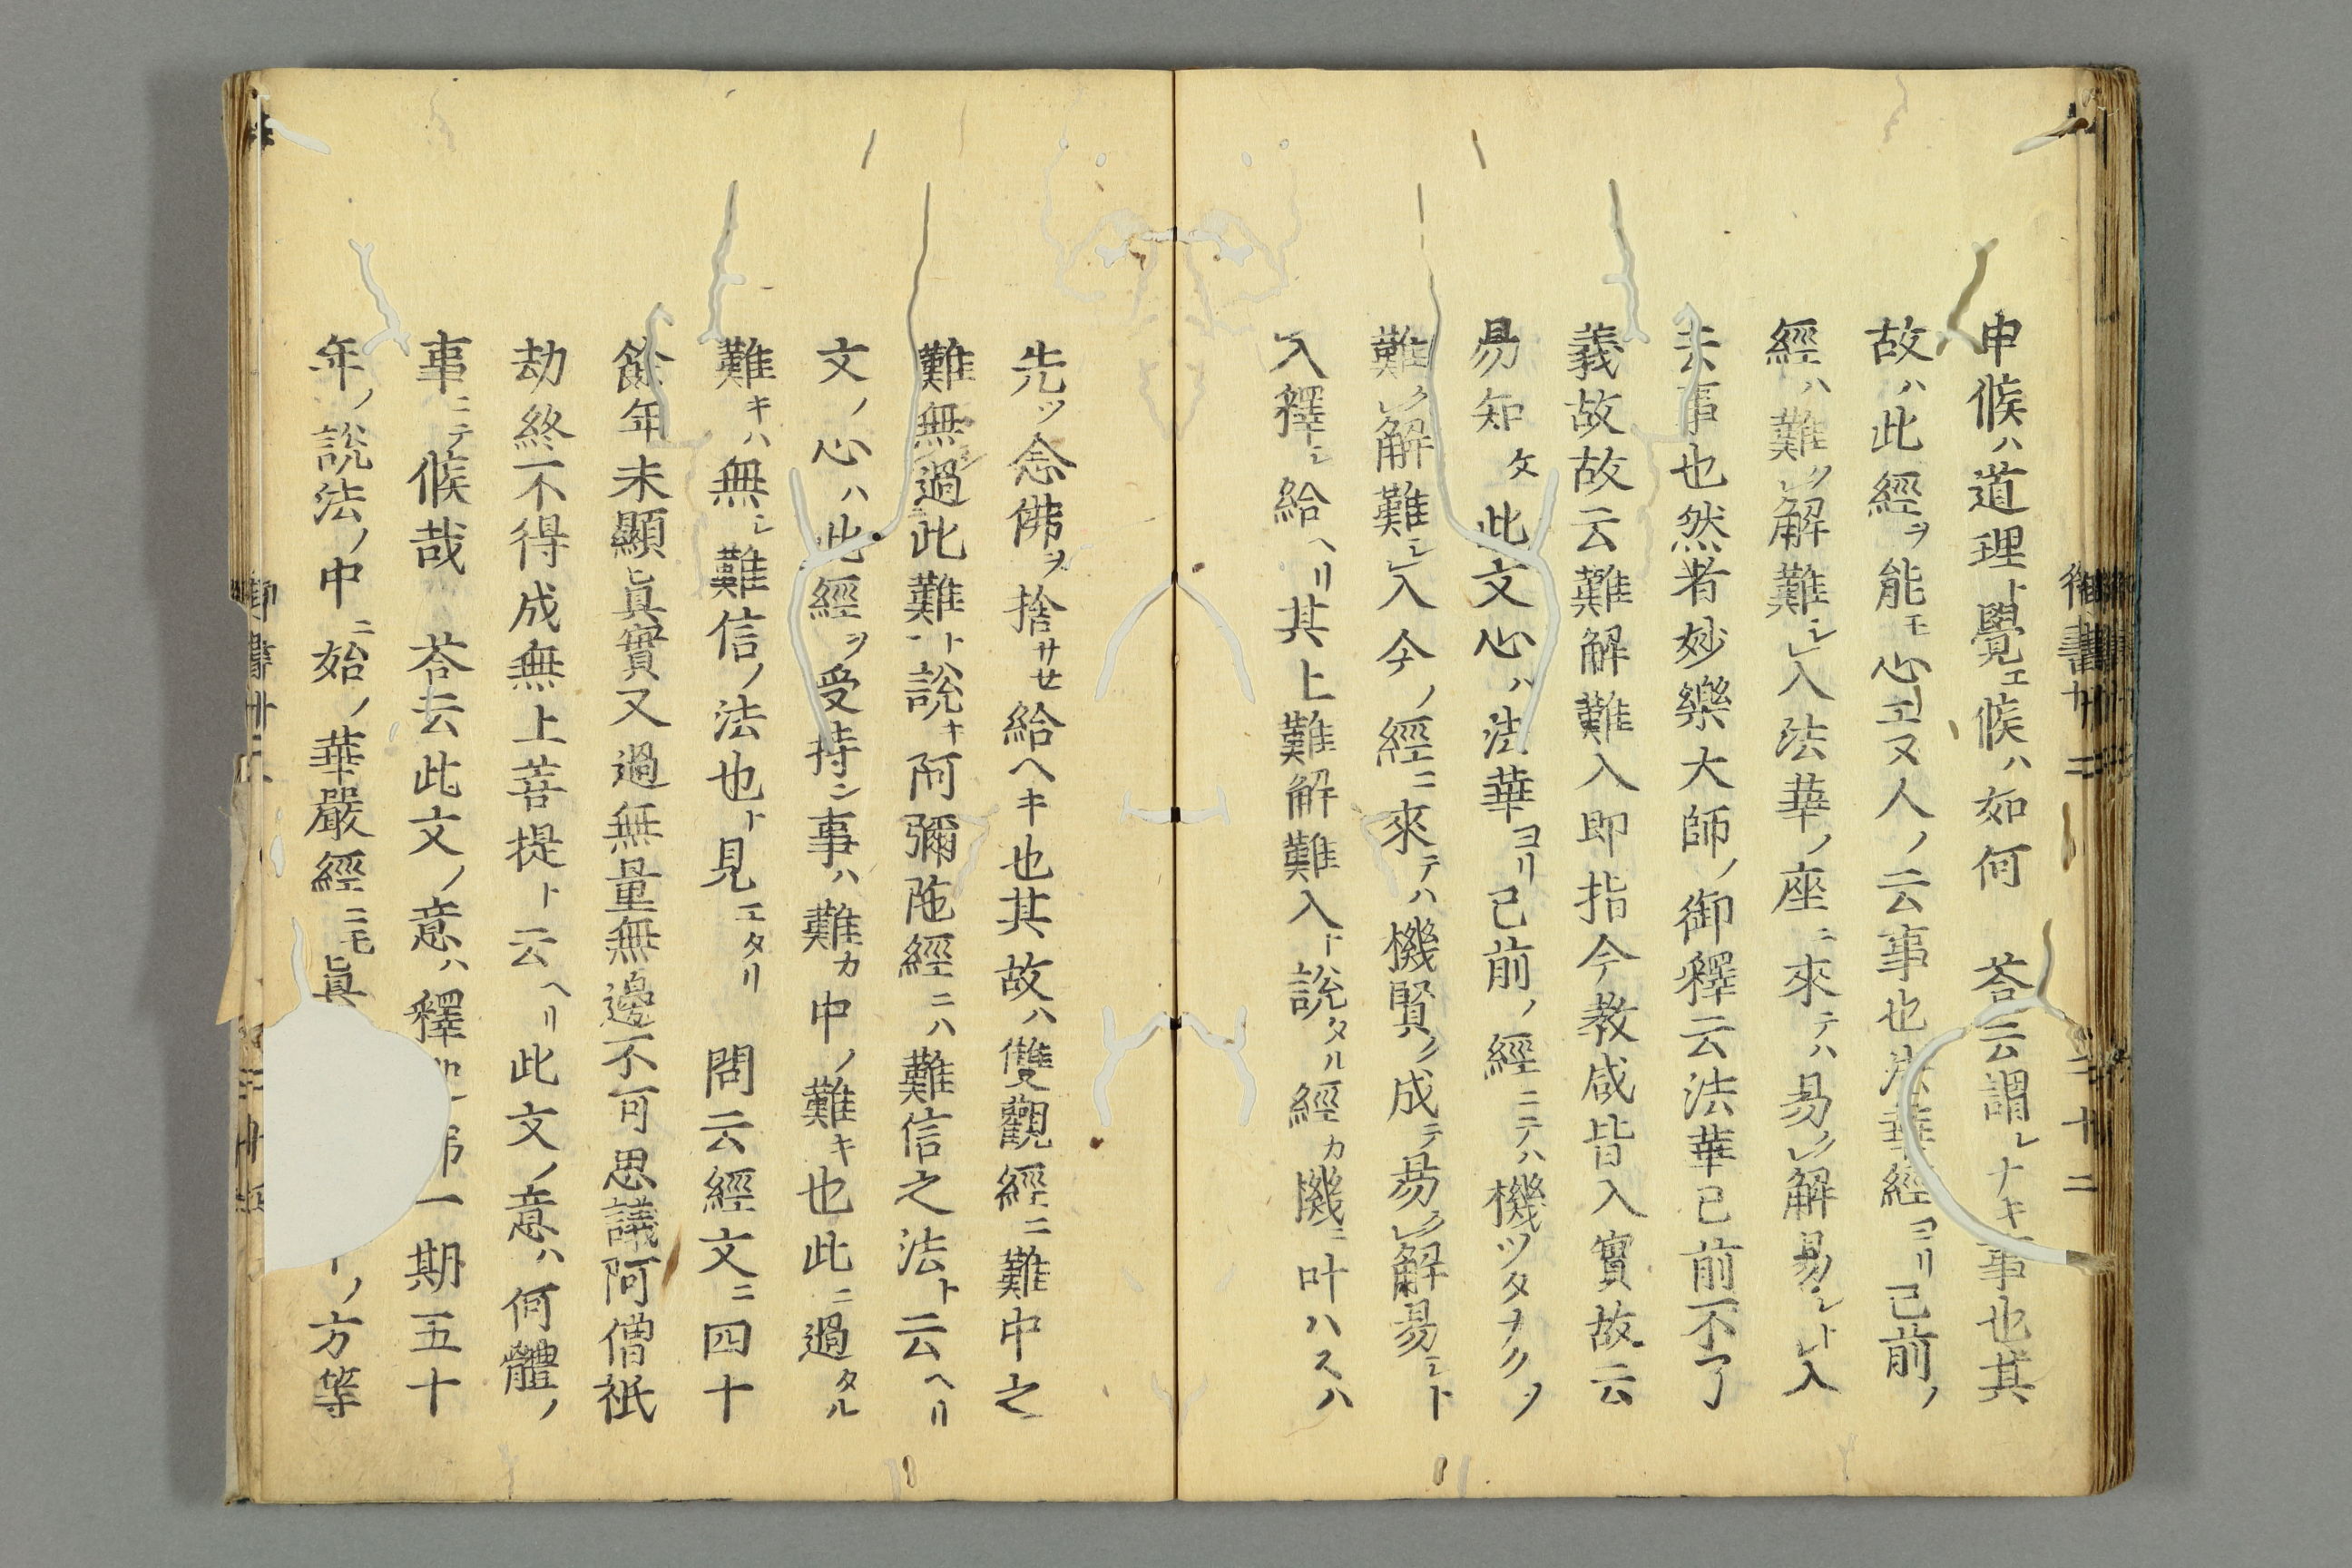 申候ハ道理ト覺エ候ハ如何　荅云謂レナキ事也其
故ハ此經ヲ能モ心エヌ人ノ云事也法華經ヨリ已前ノ
經ハ難ク解難シ入法華ノ座ニ來テハ易ク解易シト入
云事也然者妙樂大師ノ御釋云法華已前不了
義故故云難解難入即指今教咸皆入實故云
易知文此文心ハ法華ヨリ已前ノ經ニテハ機ツタナクノ
難ク解難シ入今ノ經ニ來テハ機賢ク成テ易ク解易シト
入釋シ給ヘリ其上難解難入ト說タル經カ機ニ叶ハスハ
先ツ念佛ヲ捨サセ給ヘキ也其故ハ雙觀經ニ難中之
難無過此難ト說キ阿彌陁經ニハ難信之法ト云ヘリ
文ノ心ハ此經ヲ受持シ事ハ難カ中ノ難キ也此ニ過タル
難キハ無シ難信ノ法也ト見エタリ　問云經文ニ四十
餘年未顯眞實又過無量無邊不可思議阿僧祇
劫終不得成無上菩提ト云ヘリ此文ノ意ハ何體ノ
事ニテ候哉　荅云此文ノ意ハ釋一期五十
年ノ說法ノ中ニ始ノ華嚴經ニモ眞ノ方等
御書卅二
二十二